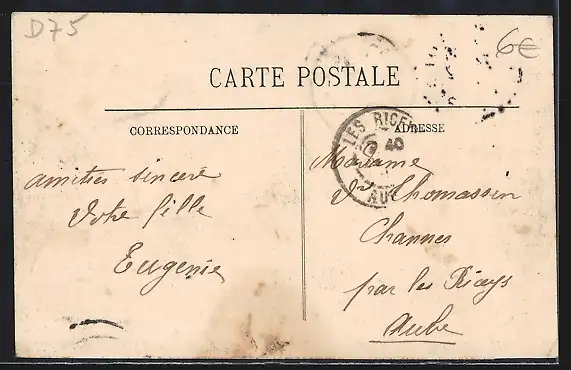 D75
6€
CARTE POSTALE
CORRESPONDANCE
ADRESSE
LES RICEYS
40
AUBE
amitiés sincère
Votre fille
Eugenie
Madame
Thomassin
Channes
par les Riceys
Aube